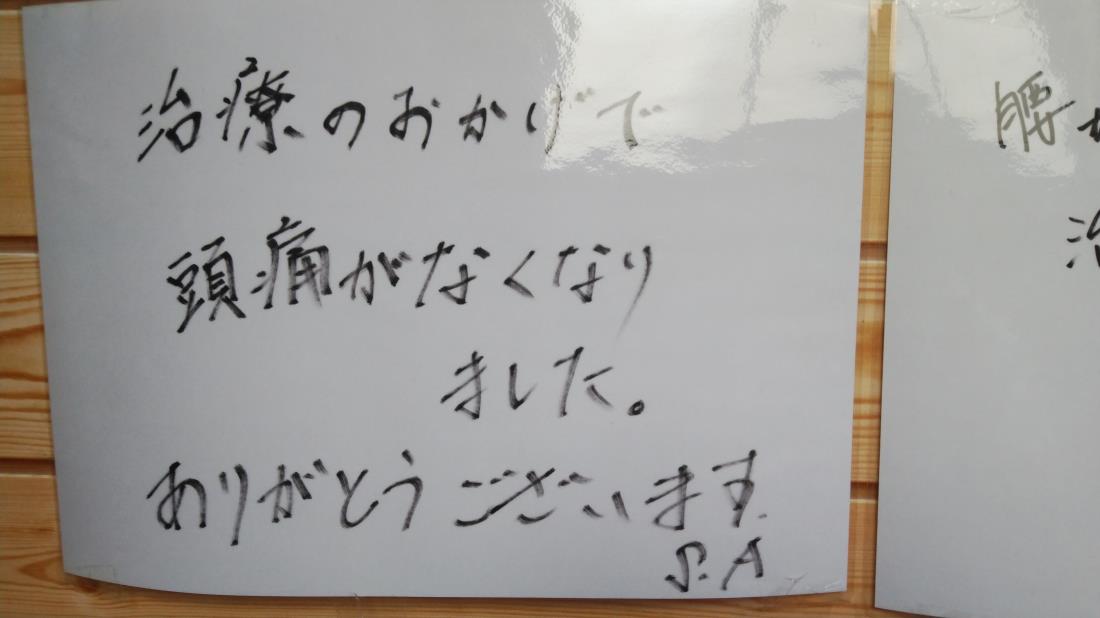 治療のおかげで
頭痛がなくなり
ました。
ありがとうございます.
S.A
腰か
治